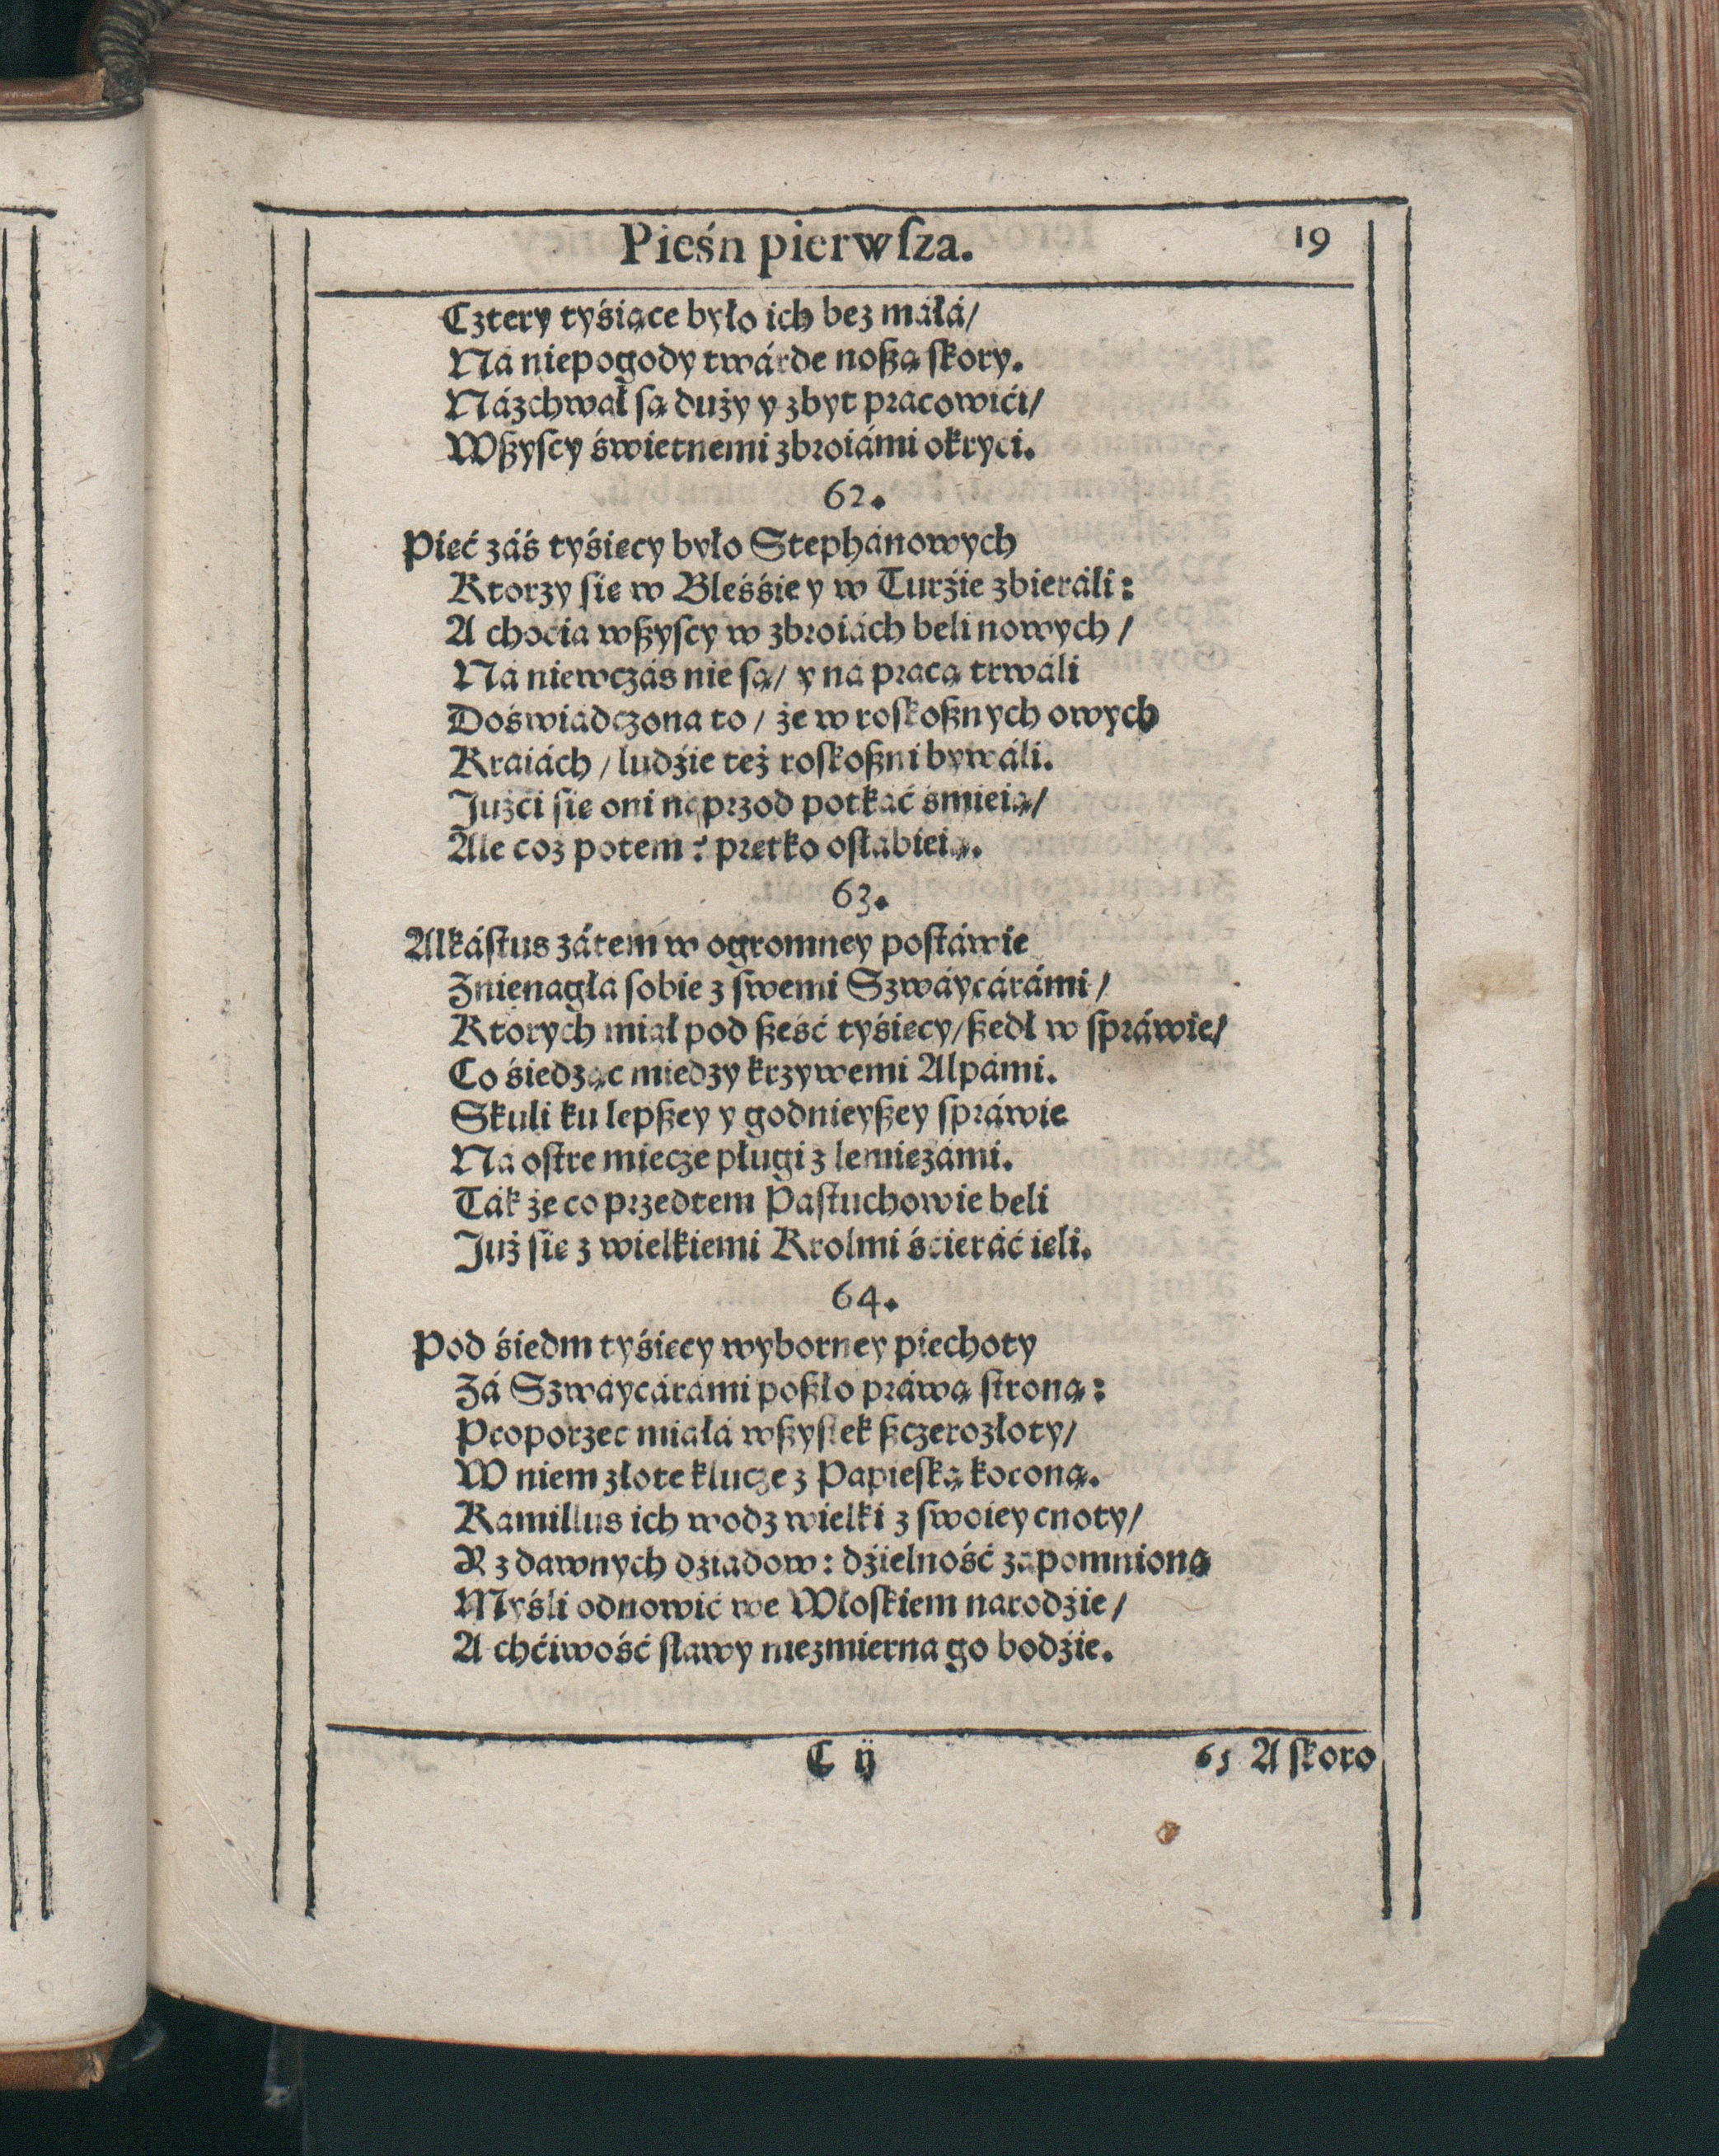 Pieśń pierwſza. 19
Cztery tyśiące było ich bez máłá/
Ná niepogody twárde noßą ſkory.
Názchwał ſą duży y zbyt pracowići/
Wßyſcy świetnemi zbroiámi okryci.
62.
Pięć záś tyśięcy było Stephánowych
Ktorzy ſię w Bleśśie y w Turźie zbieráli:
A chocia wßyſcy w zbroiách beli nowych/
Ná niewczás nie ſą/ y ná pracą trwáli
Doświadczona to/ że w roſkoßnych owych
Kraiách/ ludźie też roſkoßni bywáli.
Jużci ſię oni naprzod potkać śmieią/
Ale coż potem? prętko oſłabieią.
63.
Alkáſtus zátem w ogromney poſtáwie
Znienagłá ſobie z ſwemi Szwáycárámi/
Ktorych miał pod ßeść tyśięcy/ ßedł w ſpráwie/
Co śiedząc miedzy krzywemi Alpámi.
Skuli ku lepßey y godnieyßey ſpráwie
Ná oſtre miecze pługi z lemieżámi.
Ták że co przedtem Paſtuchowie beli
Już ſię z wielkiemi Krolmi śćieráć ięli.
64.
Pod śiedm tyśięcy wyborney piechoty
Zá Szwáycárámi poßło práwą ſtroną:
Proporzec miáłá wßyſtek ßczerozłoty/
W niem złote klucze z Papieſką koroną.
Kamillus ich wodz wielki z ſwoiey cnoty/
R z dawnych dźiadow: dźielność zapomnioną
Myśli odnowić we Włoſkiem narodźie/
A chćiwość ſławy niezmierna go bodźie.
C ij 65 A ſkoro